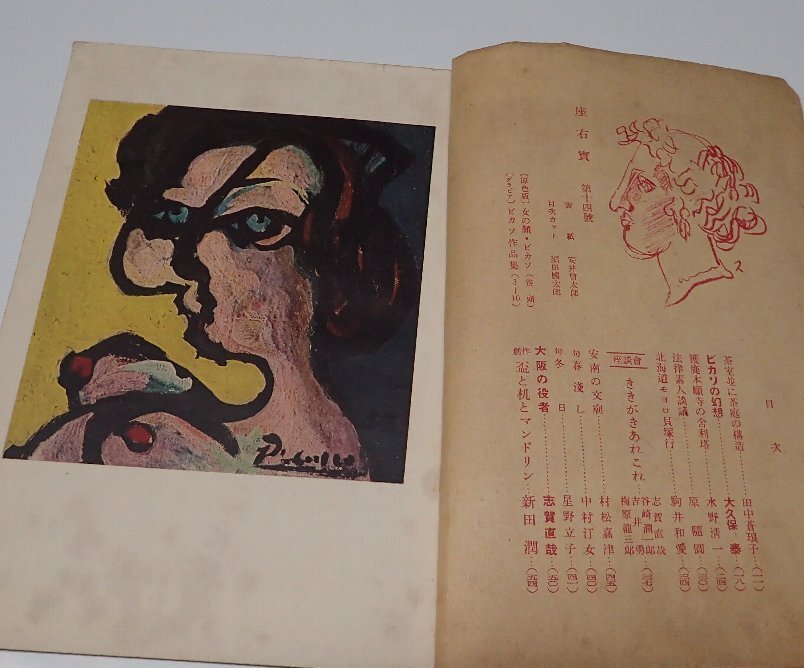 Picasso
座右寳 第十四號
表紙 安井曾太郎
目次カット 須田國太郎
(原色版) 女の顏・ピカソ (巻頭)
(グラビヤ) ピカソ作品集 (3―10)
目次
茶室並に茶庭の構造 田中蒼琅子 (一一)
ピカソの幻想 大久保泰 (一八)
獲鹿本願寺の舎利塔 水野淸一 (二四)
法律素人談議 原隨園 (三〇)
北海道モヨロ貝塚行 駒井和愛 (三四)
座談會 ききがきあれこれ 志賀直哉 谷崎潤一郎 吉井勇 梅原龍三郎 (三七)
安南の文廟 村松嘉津 (四五)
句 春淺し 中村汀女 (四〇)
句 冬日 星野立子 (四一)
大阪の役者 志賀直哉 (五〇)
創作 盃と机とマンドリン 新田潤 (五四)